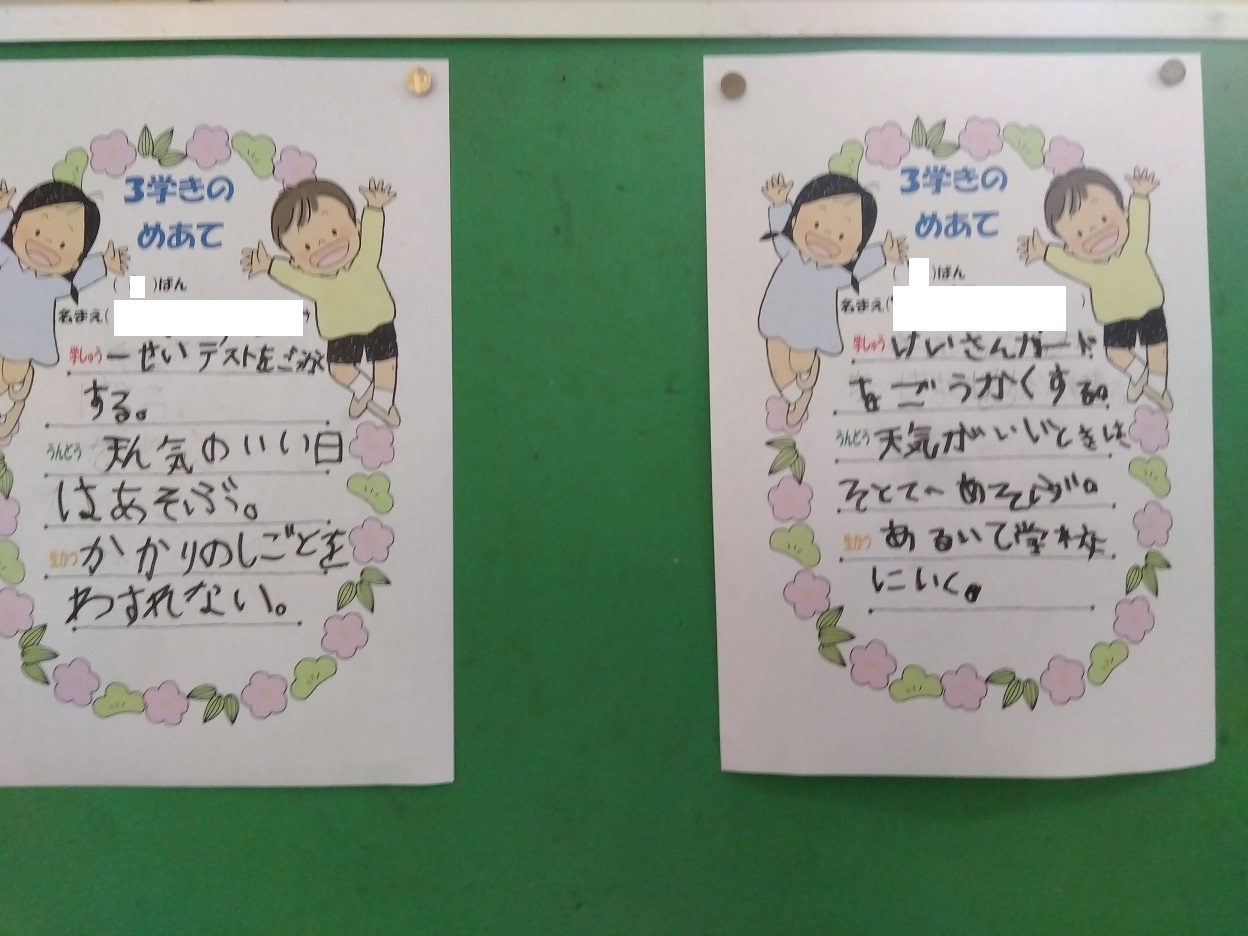 3学きの
めあて
( )ばん
名まえ(
学しゅう 一せいテストを
する。
うんどう 天気のいい日
はあそぶ。
生かつ かかりのしごとを
わすれない。
3学きの
めあて
( )ばん
名まえ( )
学しゅう けいさんカード
をごうかくする。
うんどう 天気がいいときは
そとであそぶ。
生かつ あるいて学校
にいく。